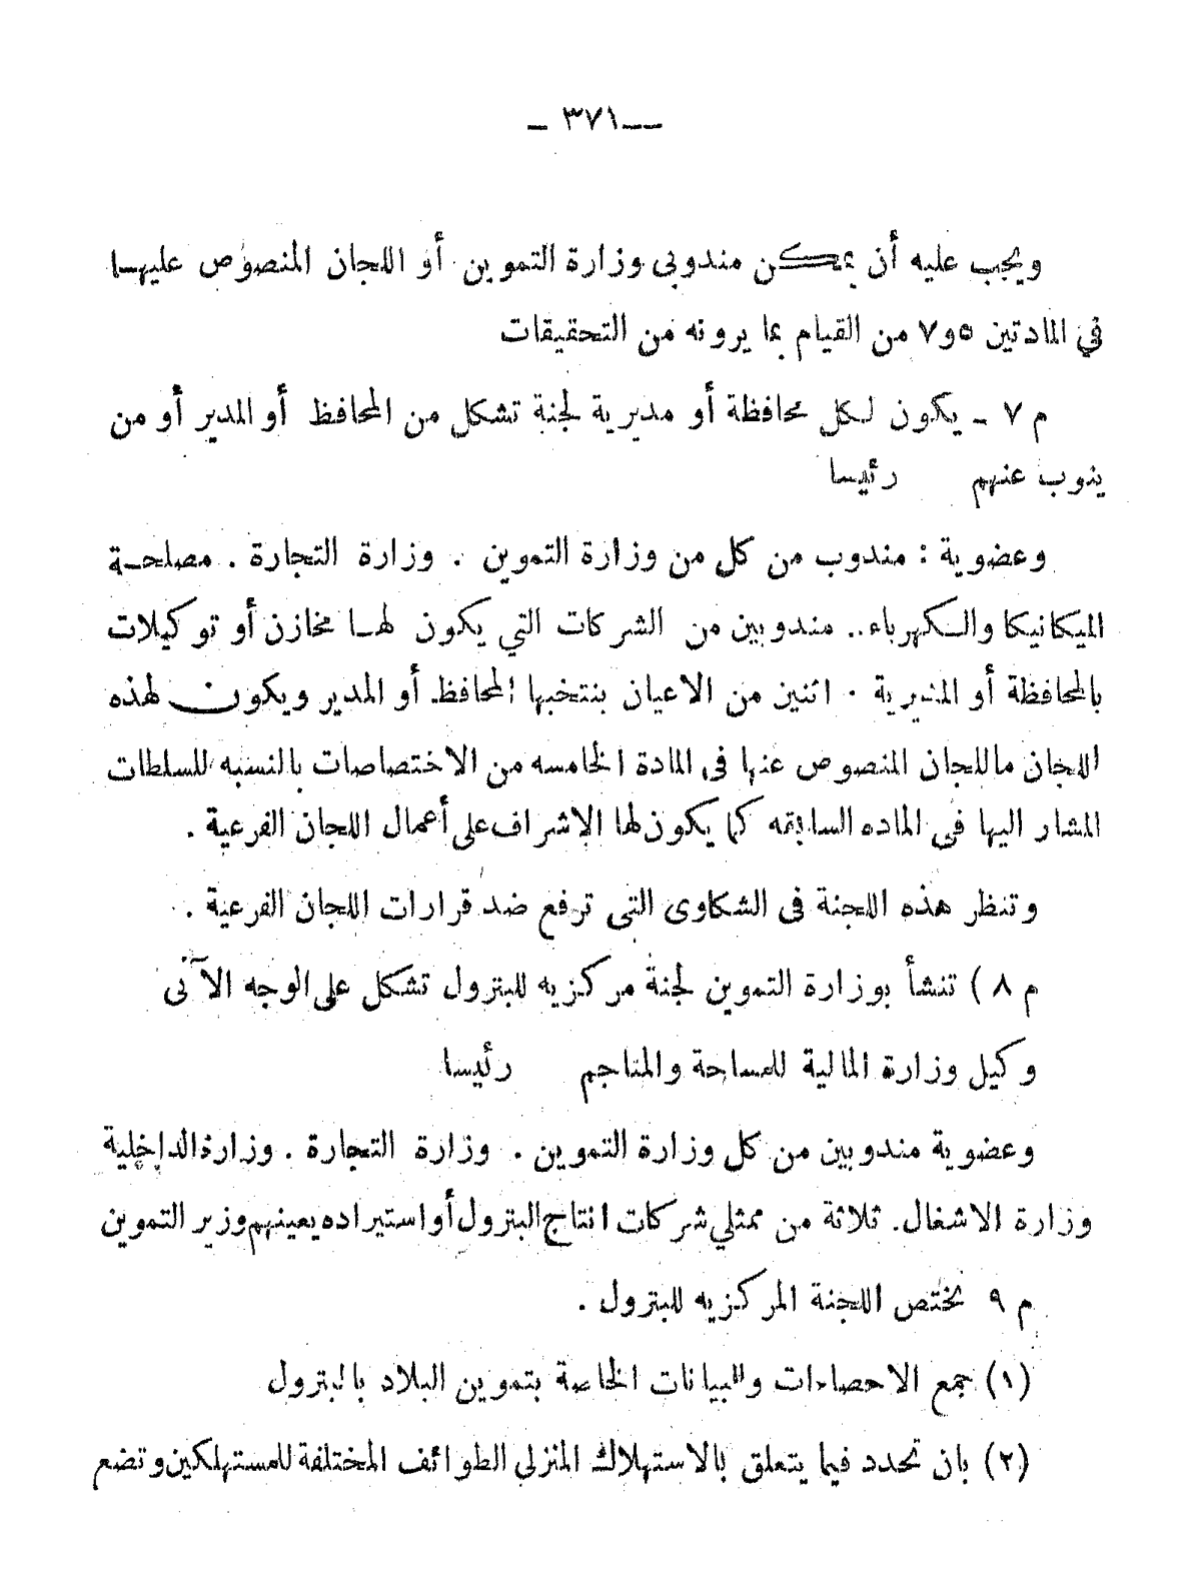 — ٣٧١ —
ويجب عليه أن يمكن مندوبى وزارة التموين أو اللجان المنصوص عليها
في المادتين ٥و٧ من القيام بما يرونه من التحقيقات
م ٧ - يكون لكل محافظة أو مديرية لجنة تشكل من المحافظ أو المدير أو من
ينوب عنهم رئيسا
وعضوية : مندوب من كل من وزارة التموين . وزارة التجارة . مصلحة
الميكانيكا والكهرباء .. مندوبين من الشركات التي يكون لها مخازن أو توكيلات
بالمحافظة أو المديرية . اثنين من الاعيان بنتخبها المحافظ أو المدير ويكون لهذه
اللجان ماللجان المنصوص عنها فى المادة الخامسه من الاختصاصات بالنسبه للسلطات
المشار اليها فى الماده السابقه كما يكون لها الاشراف على أعمال اللجان الفرعية .
وتنظر هذه اللجنة فى الشكاوى التى ترفع ضد قرارات اللجان الفرعية .
م ٨ ) تنشأ بوزارة التموين لجنة مركزيه للبترول تشكل على الوجه الآتى
وكيل وزارة المالية للمساحة والمناجم رئيسا
وعضوية مندوبين من كل وزارة التموين . وزارة التجارة . وزارة الداخلية
وزارة الاشغال. ثلاثة من ممثلي شركات انتاج البترول أو استيراده يعينهم وزير التموين
م ٩ تختص اللجنة المركزيه للبترول .
(١) جمع الاحصاءات والبيانات الخاصة بتموين البلاد بالبترول
(٢) بان تحدد فيما يتعلق بالاستهلاك المنزلي الطوائف المختلفة للمستهلكين وتضع